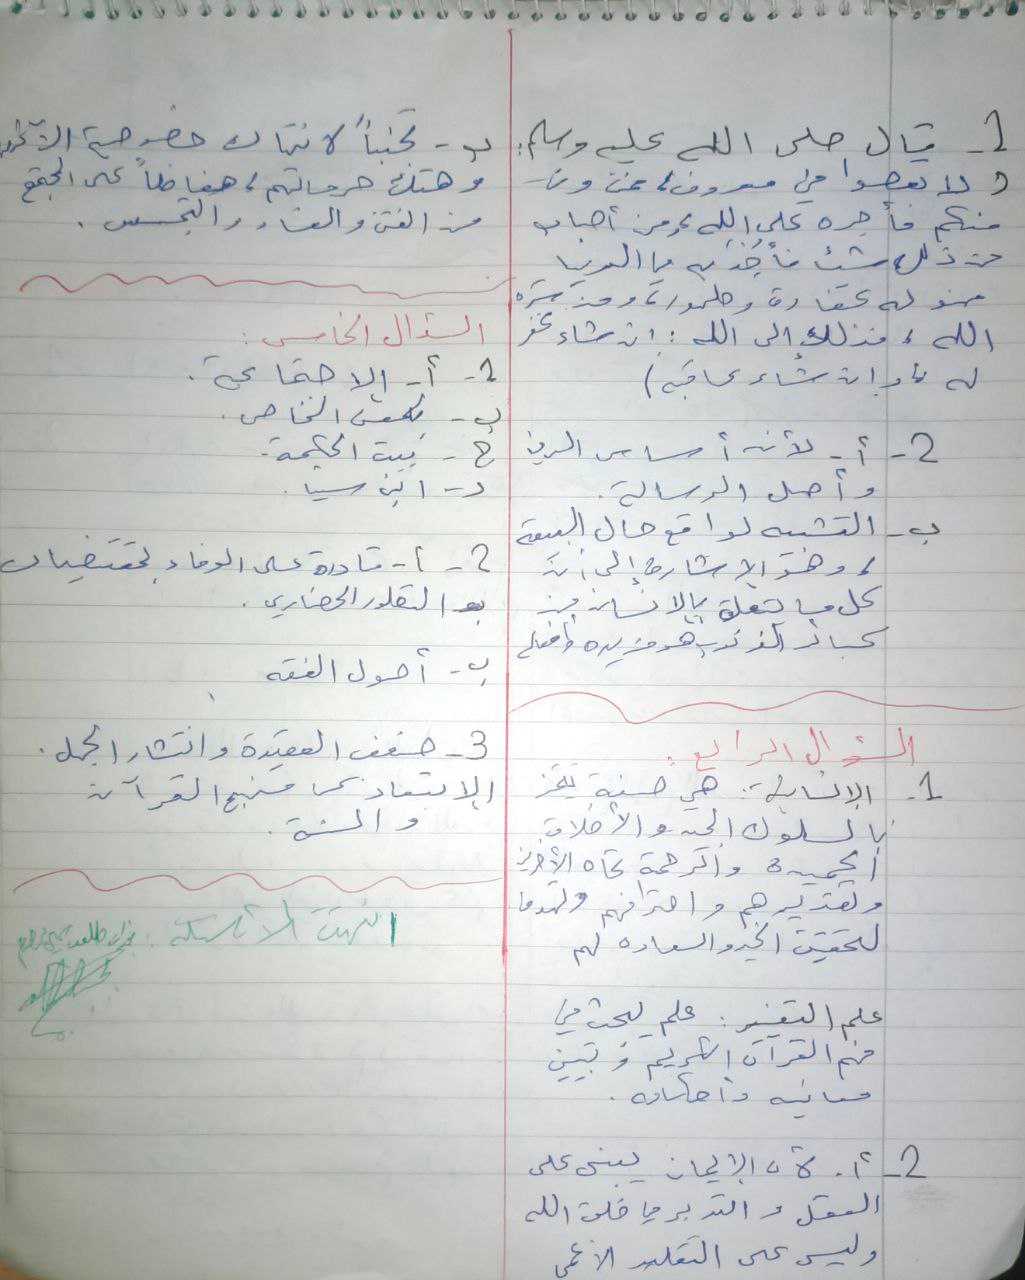 1- قال صلى الله عليه وسلم:
ولا تعصوا في معروف، فمن وفى
منكم فأجره على الله ومن أصاب
من ذلك شيئ فأخذ به في الدنيا
فهو له كفارة وطهور، ومن ستره
الله، فذلك إلى الله: إن شاء غفر
له وإن شاء عاقبه)
2- أ- لأنه أساس الدين
وأصل الرسالة.
ب- التشبيه لواقع حال البيعة
، وفيه الإشارة إلى أن
كل ما يتعلق بالإنسان من
كبائر الذنوب هو من يده وأفعاله
السؤال الرابع:
1- الإنسانية: هي صفة تتميز
بالسلوك الحسن والأخلاق
الحميدة والرحمة تجاه الآخرين
وتقديرهم واحترامهم
لتحقيق الخير والسعادة لهم
علم التفسير: علم يبحث في
فهم القرآن الكريم وتبيين
معانيه وأحكامه.
2- أ- لأن الإيمان يبنى على
العقل والتدبر في خلق الله
وليس على التقليد الأعمى
ب- تجنباً لانتهاك خصوصية الآخرين
وهتك حرماتهم، حفاظاً على المجتمع
من الفتن والفساد والتجسس.
السؤال الخامس:
1- أ- الاجتماعية.
ب- الخاص.
ج- بيت الحكمة.
د- ابن سينا.
2- أ- قادرة على الوفاء بمقتضيات
التطور الحضاري.
ب- أصول الفقه
3- ضعف العقيدة وانتشار الجهل.
الابتعاد عن منهج القرآن
والسنة.
انتهت الأسئلة